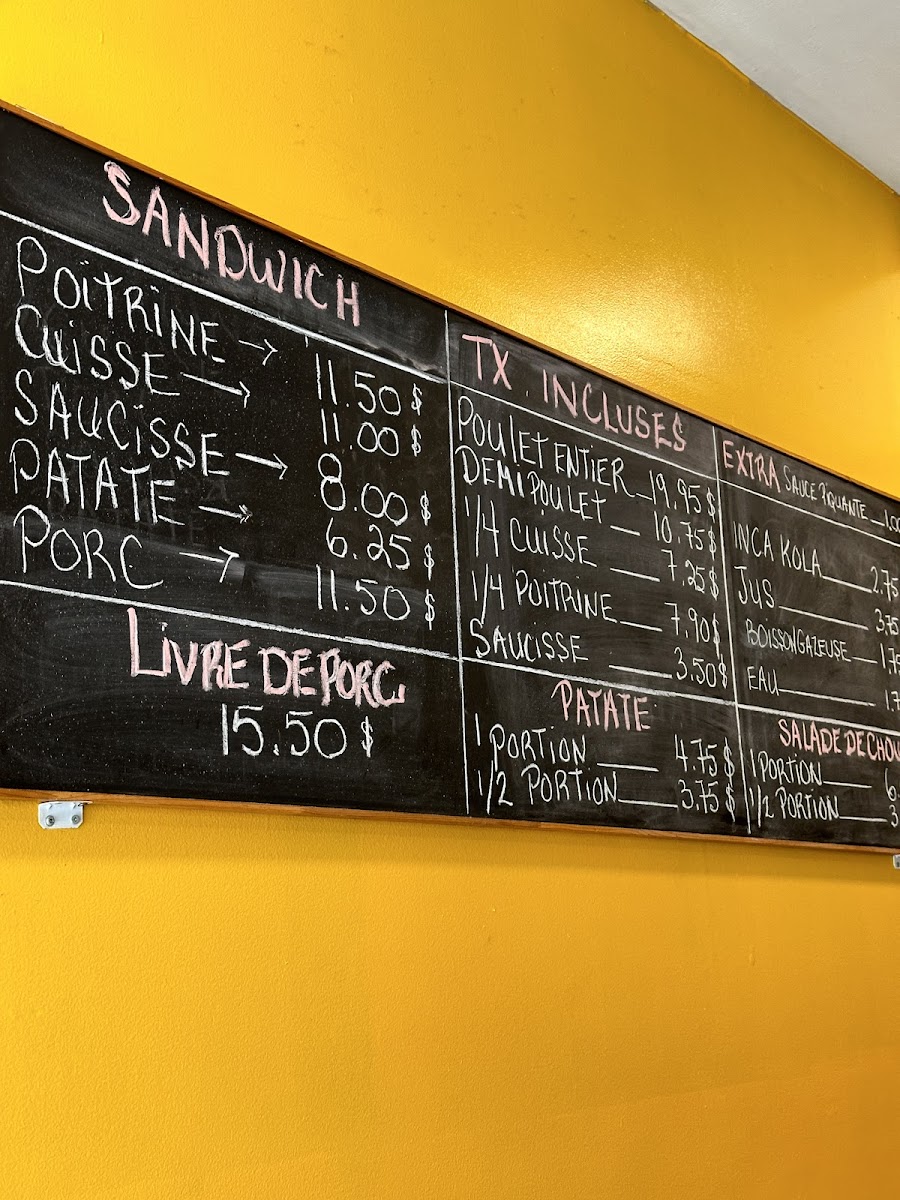 SANDWICH
POITRINE → 11.50 $
CUISSE → 11.00 $
SAUCISSE → 8.00 $
PATATE → 6.25 $
PORC → 11.50 $
LIVRE DE PORC
15.50 $
TX. INCLUSES
POULET ENTIER 19.95 $
DEMI POULET 10.75 $
1/4 CUISSE 7.25 $
1/4 POITRINE 7.90 $
SAUCISSE 3.50 $
PATATE
1 PORTION 4.75 $
1/2 PORTION 3.75 $
EXTRA SAUCE PIQUANTE 1.00
INCA KOLA 2.75
JUS 3.75
BOISSON GAZEUSE 1.75
EAU 1.7
SALADE DE CHOU
1 PORTION 6.
1/2 PORTION 3